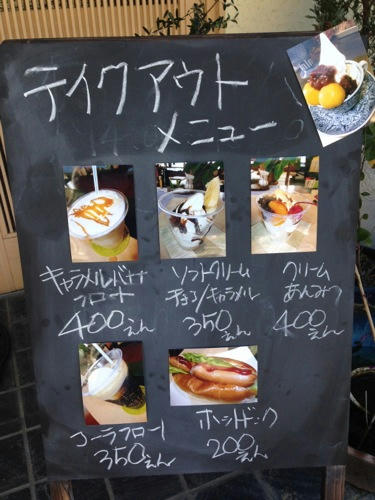 テイクアウト
メニュー
キャラメルバナナ
フロート
400えん
ソフトクリーム
チョコ/キャラメル
350えん
クリーム
あんみつ
400えん
コーラフロート
350えん
ホットドック
200えん